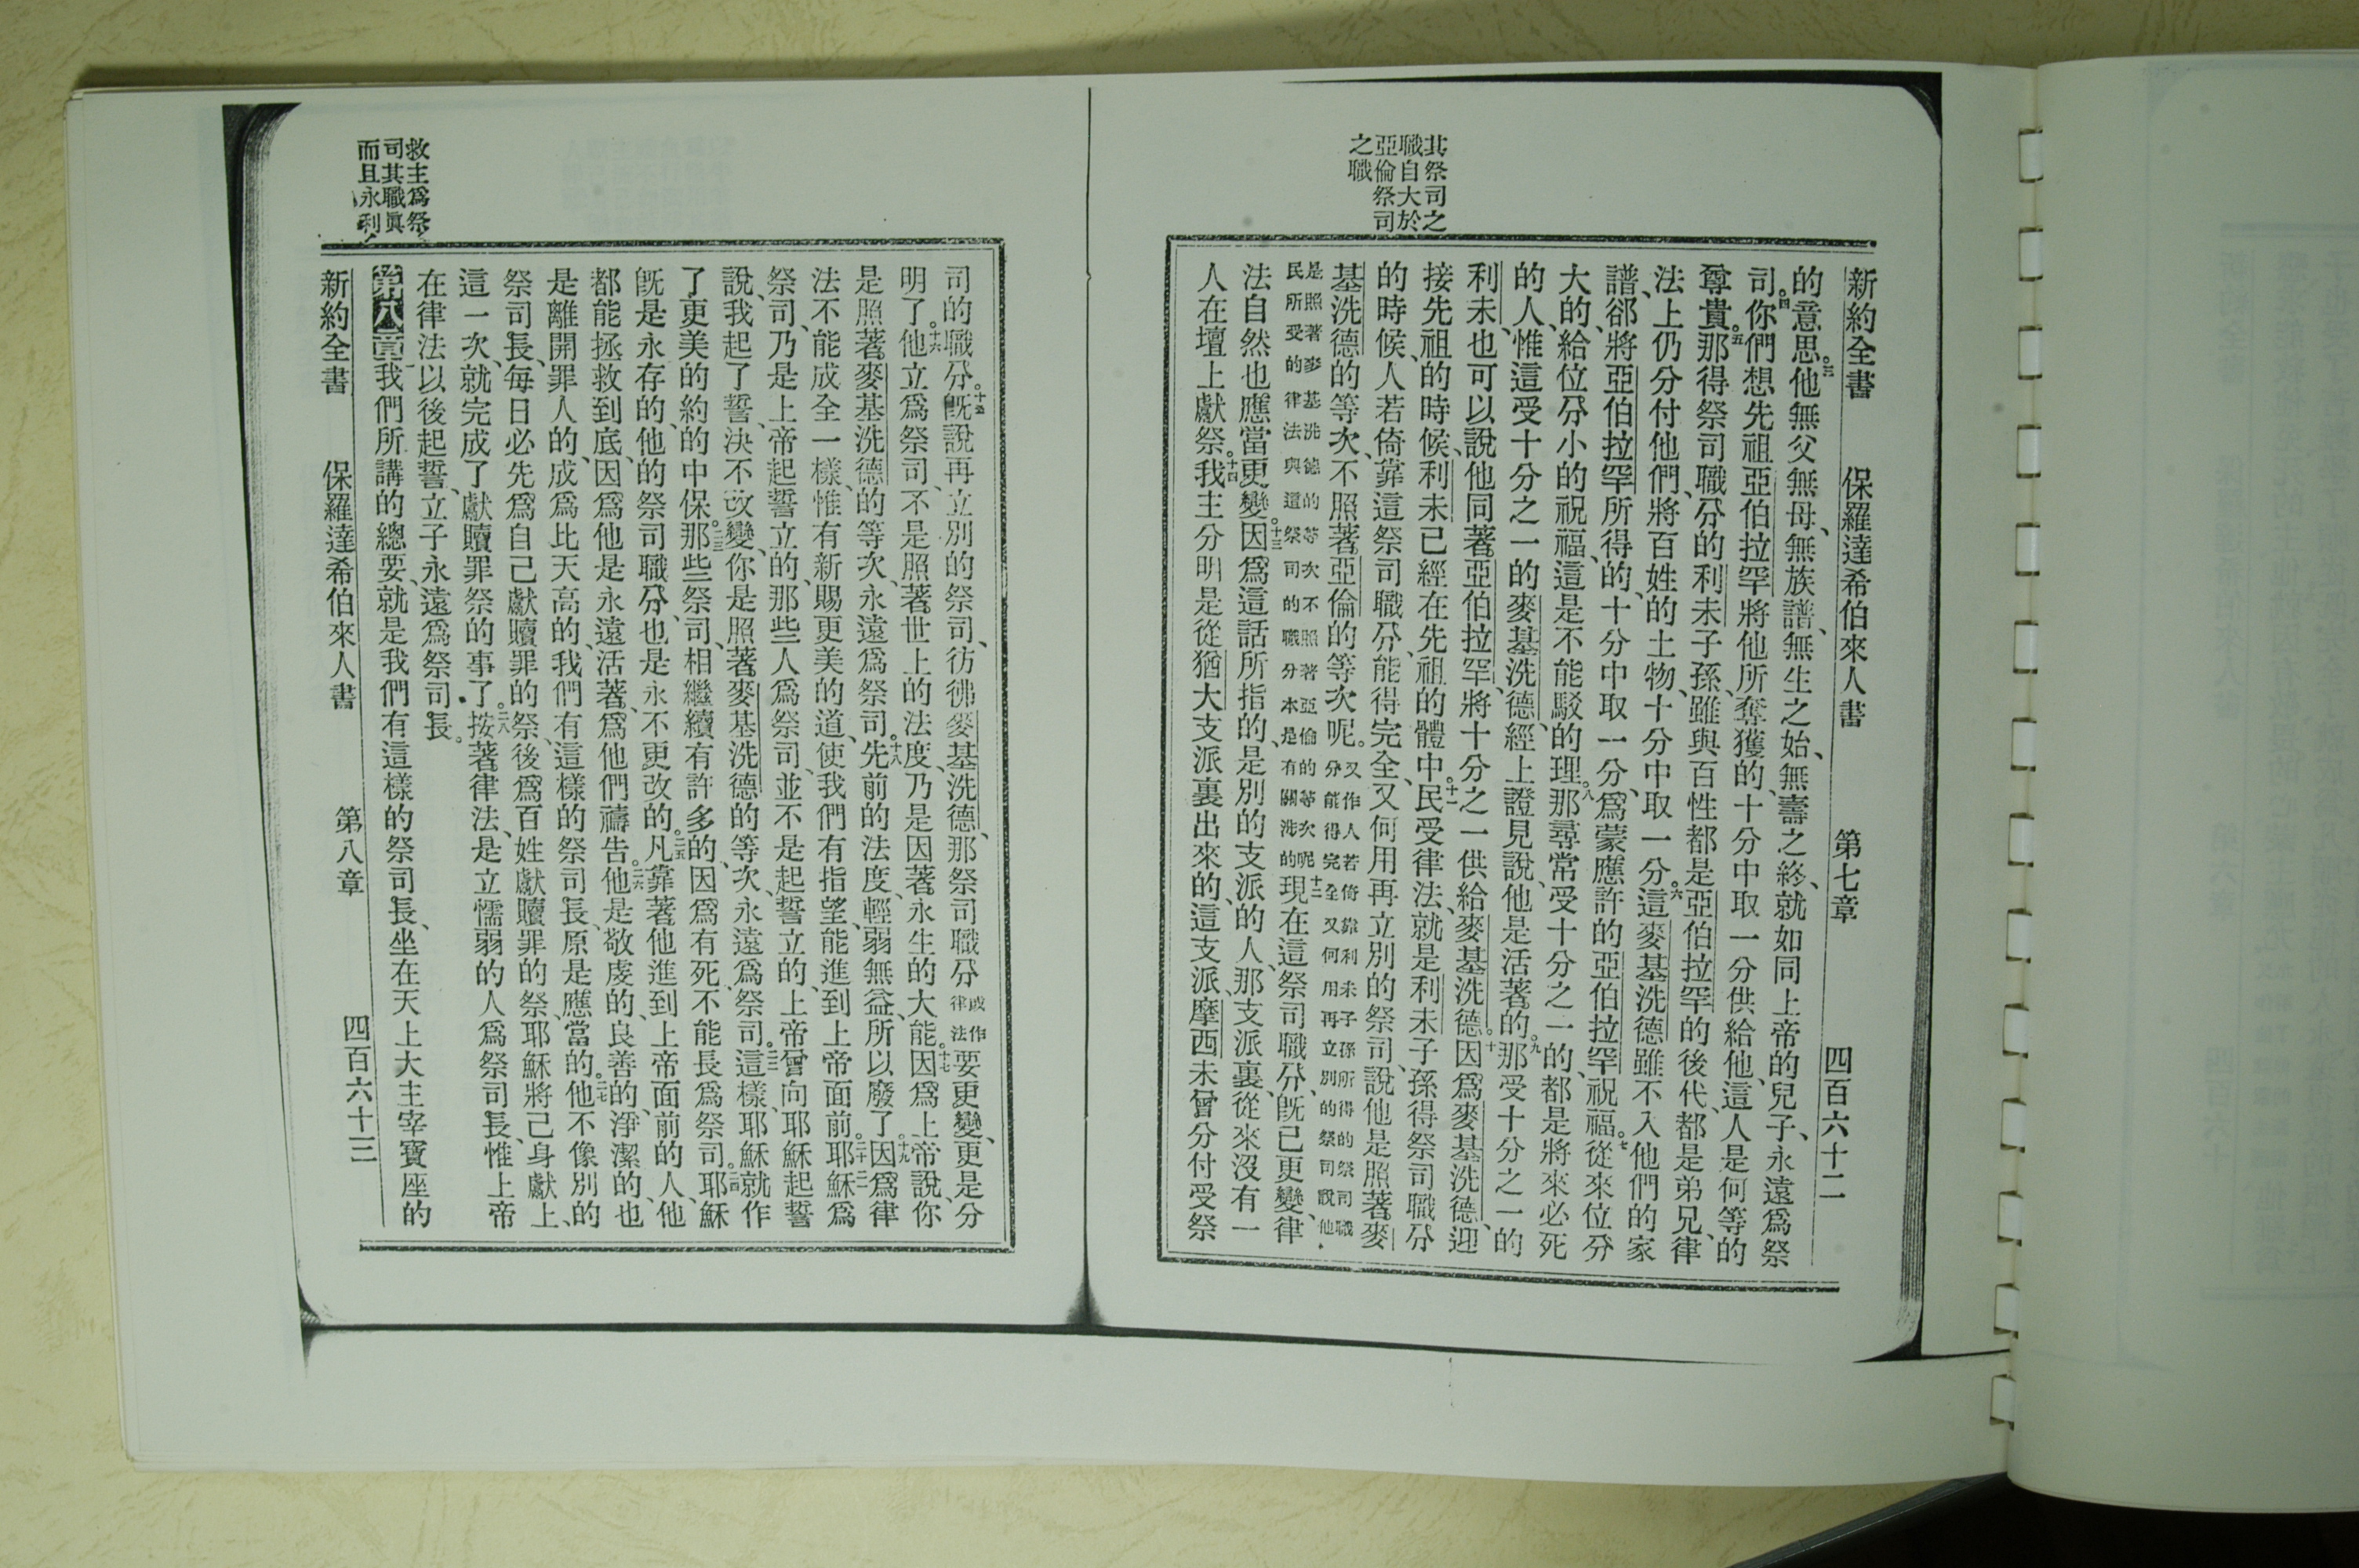 其祭司之
職自大於
亞倫祭司
之職
新約全書　保羅達希伯來人書　第七章　四百六十二
的意思。三他無父無母、無族譜、無生之始、無壽之終、就如同上帝的兒子、永遠爲祭
司。四你們想先祖亞伯拉罕將他所奪獲的、十分中取一分供給他、這人是何等的
尊貴。五那得祭司職分的利未子孫、雖與百性都是亞伯拉罕的後代、都是弟兄、律
法上仍分付他們、將百姓的土物、十分中取一分。六這麥基洗德雖不入他們的家
譜、卻將亞伯拉罕所得的、十分中取一分、爲蒙應許的亞伯拉罕祝福。七從來位分
大的、給位分小的祝福、這是不能駁的理。八那尋常受十分之一的、都是將來必死
的人、惟這受十分之一的麥基洗德、經上證見說、他是活著的。九那受十分之一的
利未、也可以說他同著亞伯拉罕、將十分之一供給麥基洗德。十因爲麥基洗德、迎
接先祖的時候、利未已經在先祖的體中。十一民受律法、就是利未子孫得祭司職分
的時候、人若倚靠這祭司職分、能得完全、又何用再立別的祭司、說他是照著麥
基洗德的等次、不照著亞倫的等次呢。又作人若倚靠利未子孫所得的祭司職
分能得完全又何用再立別的祭司說他
是照著麥基洗德的等次不照著亞倫的等次呢
民所受的律法與這祭司的職分本是有關涉的十二現在這祭司職分、旣已更變、律
法自然也應當更變。十三因爲這話所指的、是別的支派的人、那支派裏、從來沒有一
人在壇上獻祭。十四我主分明是從猶大支派裏出來的、這支派、摩西未曾分付受祭
司的職分。十五旣說再立別的祭司、彷彿麥基洗德、那祭司職分或作
律法要更變、更是分
明了。十六他立爲祭司、不是照著世上的法度、乃是因著永生的大能。十七因爲上帝說、你
是照著麥基洗德的等次、永遠爲祭司。十八先前的法度、輕弱無益、所以廢了。十九因爲律
法不能成全一樣、惟有新賜更美的道、使我們有指望、能進到上帝面前。二十耶穌爲
祭司、乃是上帝起誓立的、那些人爲祭司、並不是起誓立的、上帝曾向耶穌起誓
說、我起了誓、決不改變、你是照著麥基洗德的等次、永遠爲祭司。二二這樣、耶穌就作
了更美的約的中保。二三那些祭司、相繼續有許多的、因爲有死、不能長爲祭司。二四耶穌
旣是永存的、他的祭司職分、也是永不更改的。二五凡靠著他進到上帝面前的人、他
都能拯救到底、因爲他是永遠活著、爲他們禱告。二六他是敬虔的、良善的、淨潔的、也
是離開罪人的、成爲比天高的、我們有這樣的祭司長、原是應當的。二七他不像別的
祭司長、每日必先爲自己獻贖罪的祭、後爲百姓獻贖罪的祭、耶穌將己身獻上、
這一次、就完成了獻贖罪祭的事了。二八按著律法、是立懦弱的人爲祭司長、惟上帝
在律法以後起誓、立子永遠爲祭司長。
第八章我們所講的總要、就是我們有這樣的祭司長、坐在天上大主宰寶座的
新約全書　保羅達希伯來人書　第八章　四百六十三
救主爲祭
司其職眞
而且永利